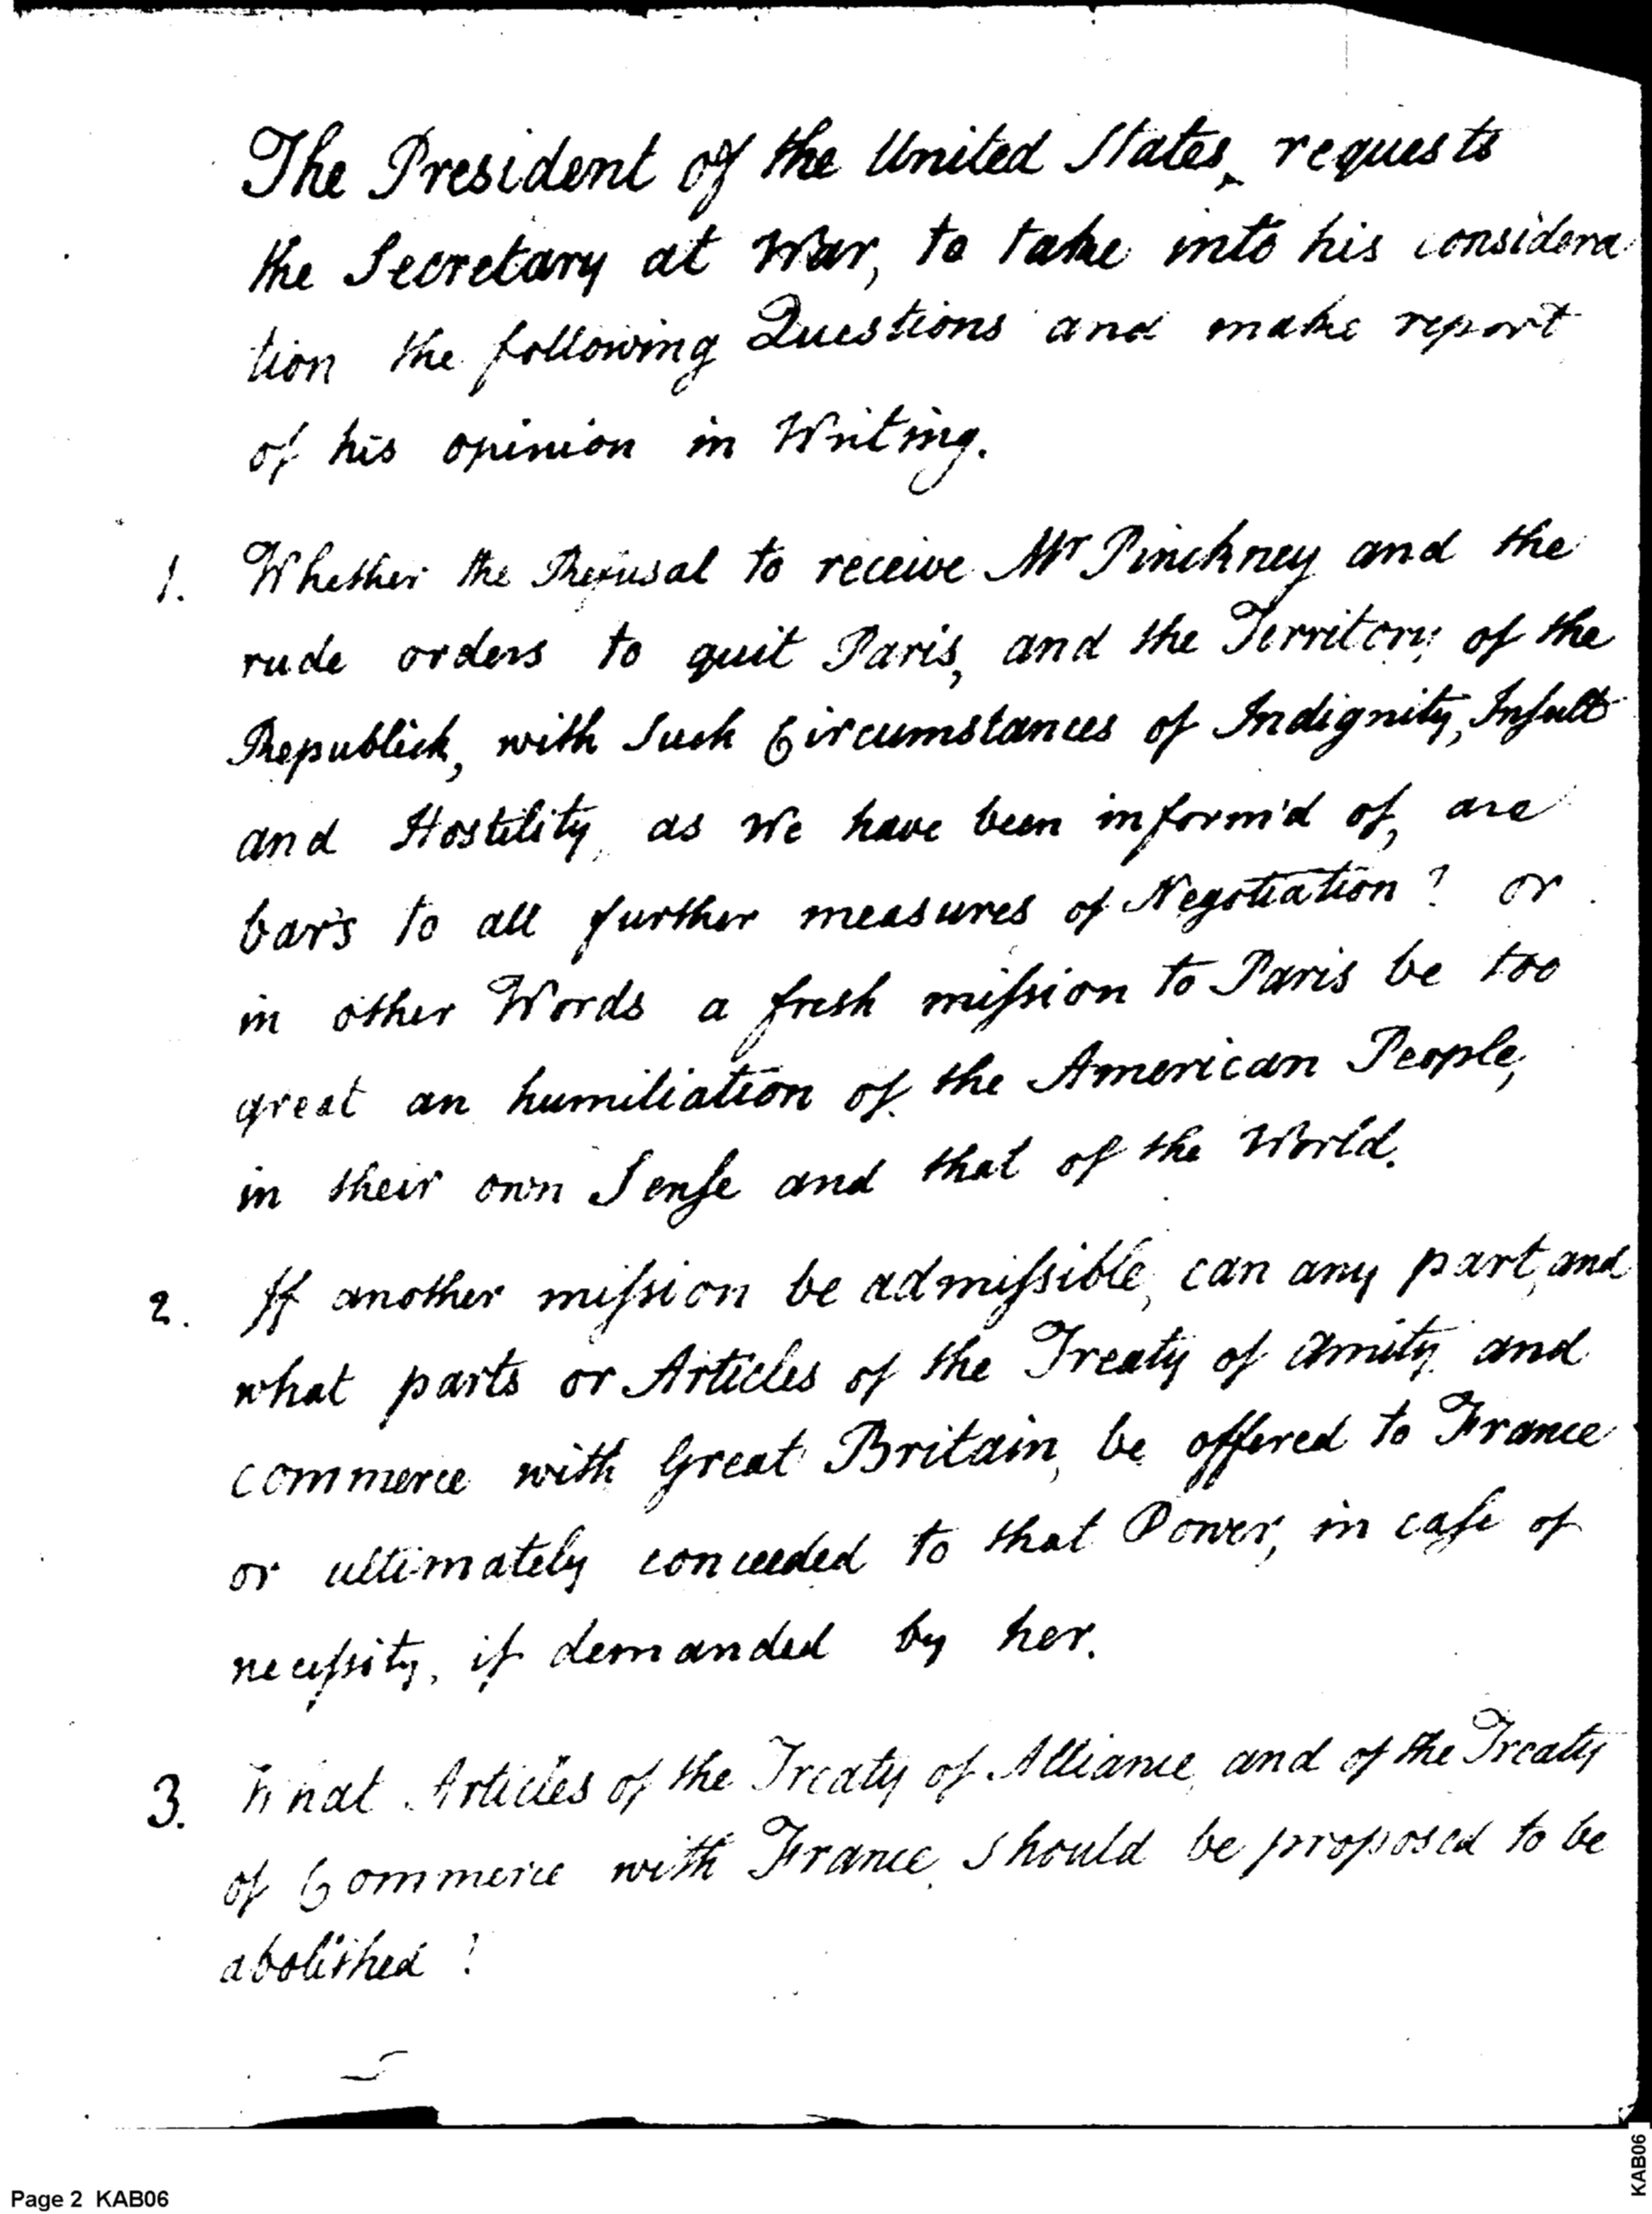 The President of the United States, requests
the Secretary at War, to take into his considera
tion the following Questions and make report
of his opinion in Writing.
1. Whether the Refusal to receive Mr Pinckney and the
rude orders to quit Paris, and the Territory of the
Republick, with Such Circumstances of Indignity, Insult
and Hostility, as we have been inform'd of, are
bars to all further measures of Negotiation? or
in other Words a fresh mission to Paris be too
great an humiliation of the American People,
in their own Sense and that of the World.
2. If another mission be admissible, can any part, and
what parts or Articles of the Treaty of Amity and
commerce with Great Britain, be offered to France
or ultimately conceeded to that Power, in case of
necessity, if demanded by her.
3. What Articles of the Treaty of Alliance, and of the Treaty
of Commerce with France, should be proposed to be
abolished?
Page 2 KAB06
KAB06